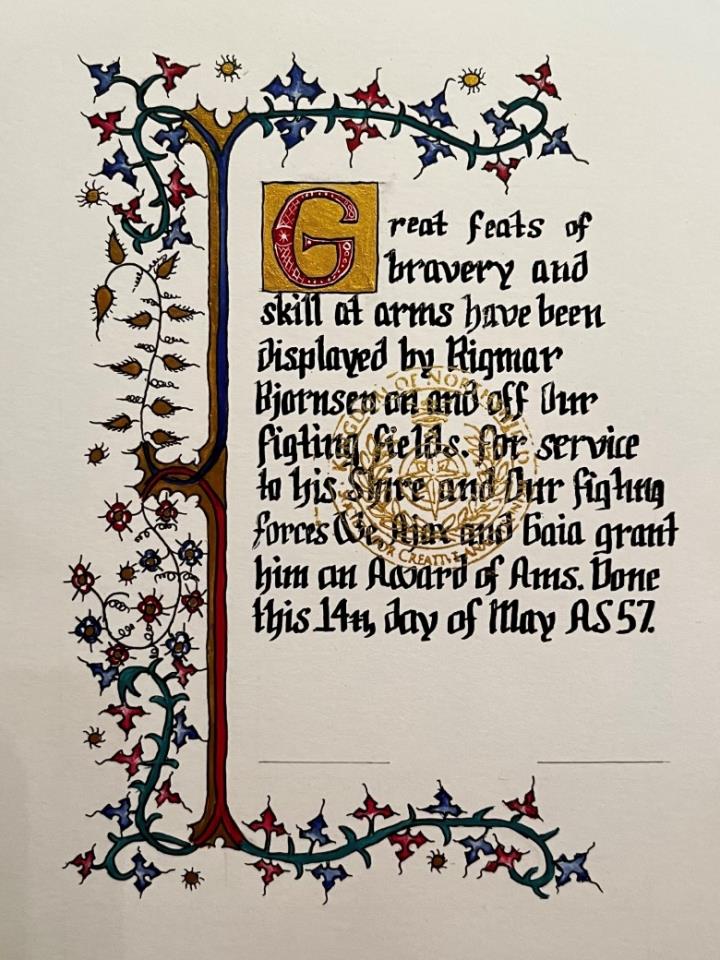 Great feats of
bravery and
skill at arms have been
displayed by Rigmar
Bjornsen on and off Our
figting fields. for service
to his Shire and Our figting
forces We Ajax and Gaia grant
him an Award of Ams. Done
this 14th day of May AS 57.
KINGDOM OF NORTHSHIELD
FOR CREATIVE AN